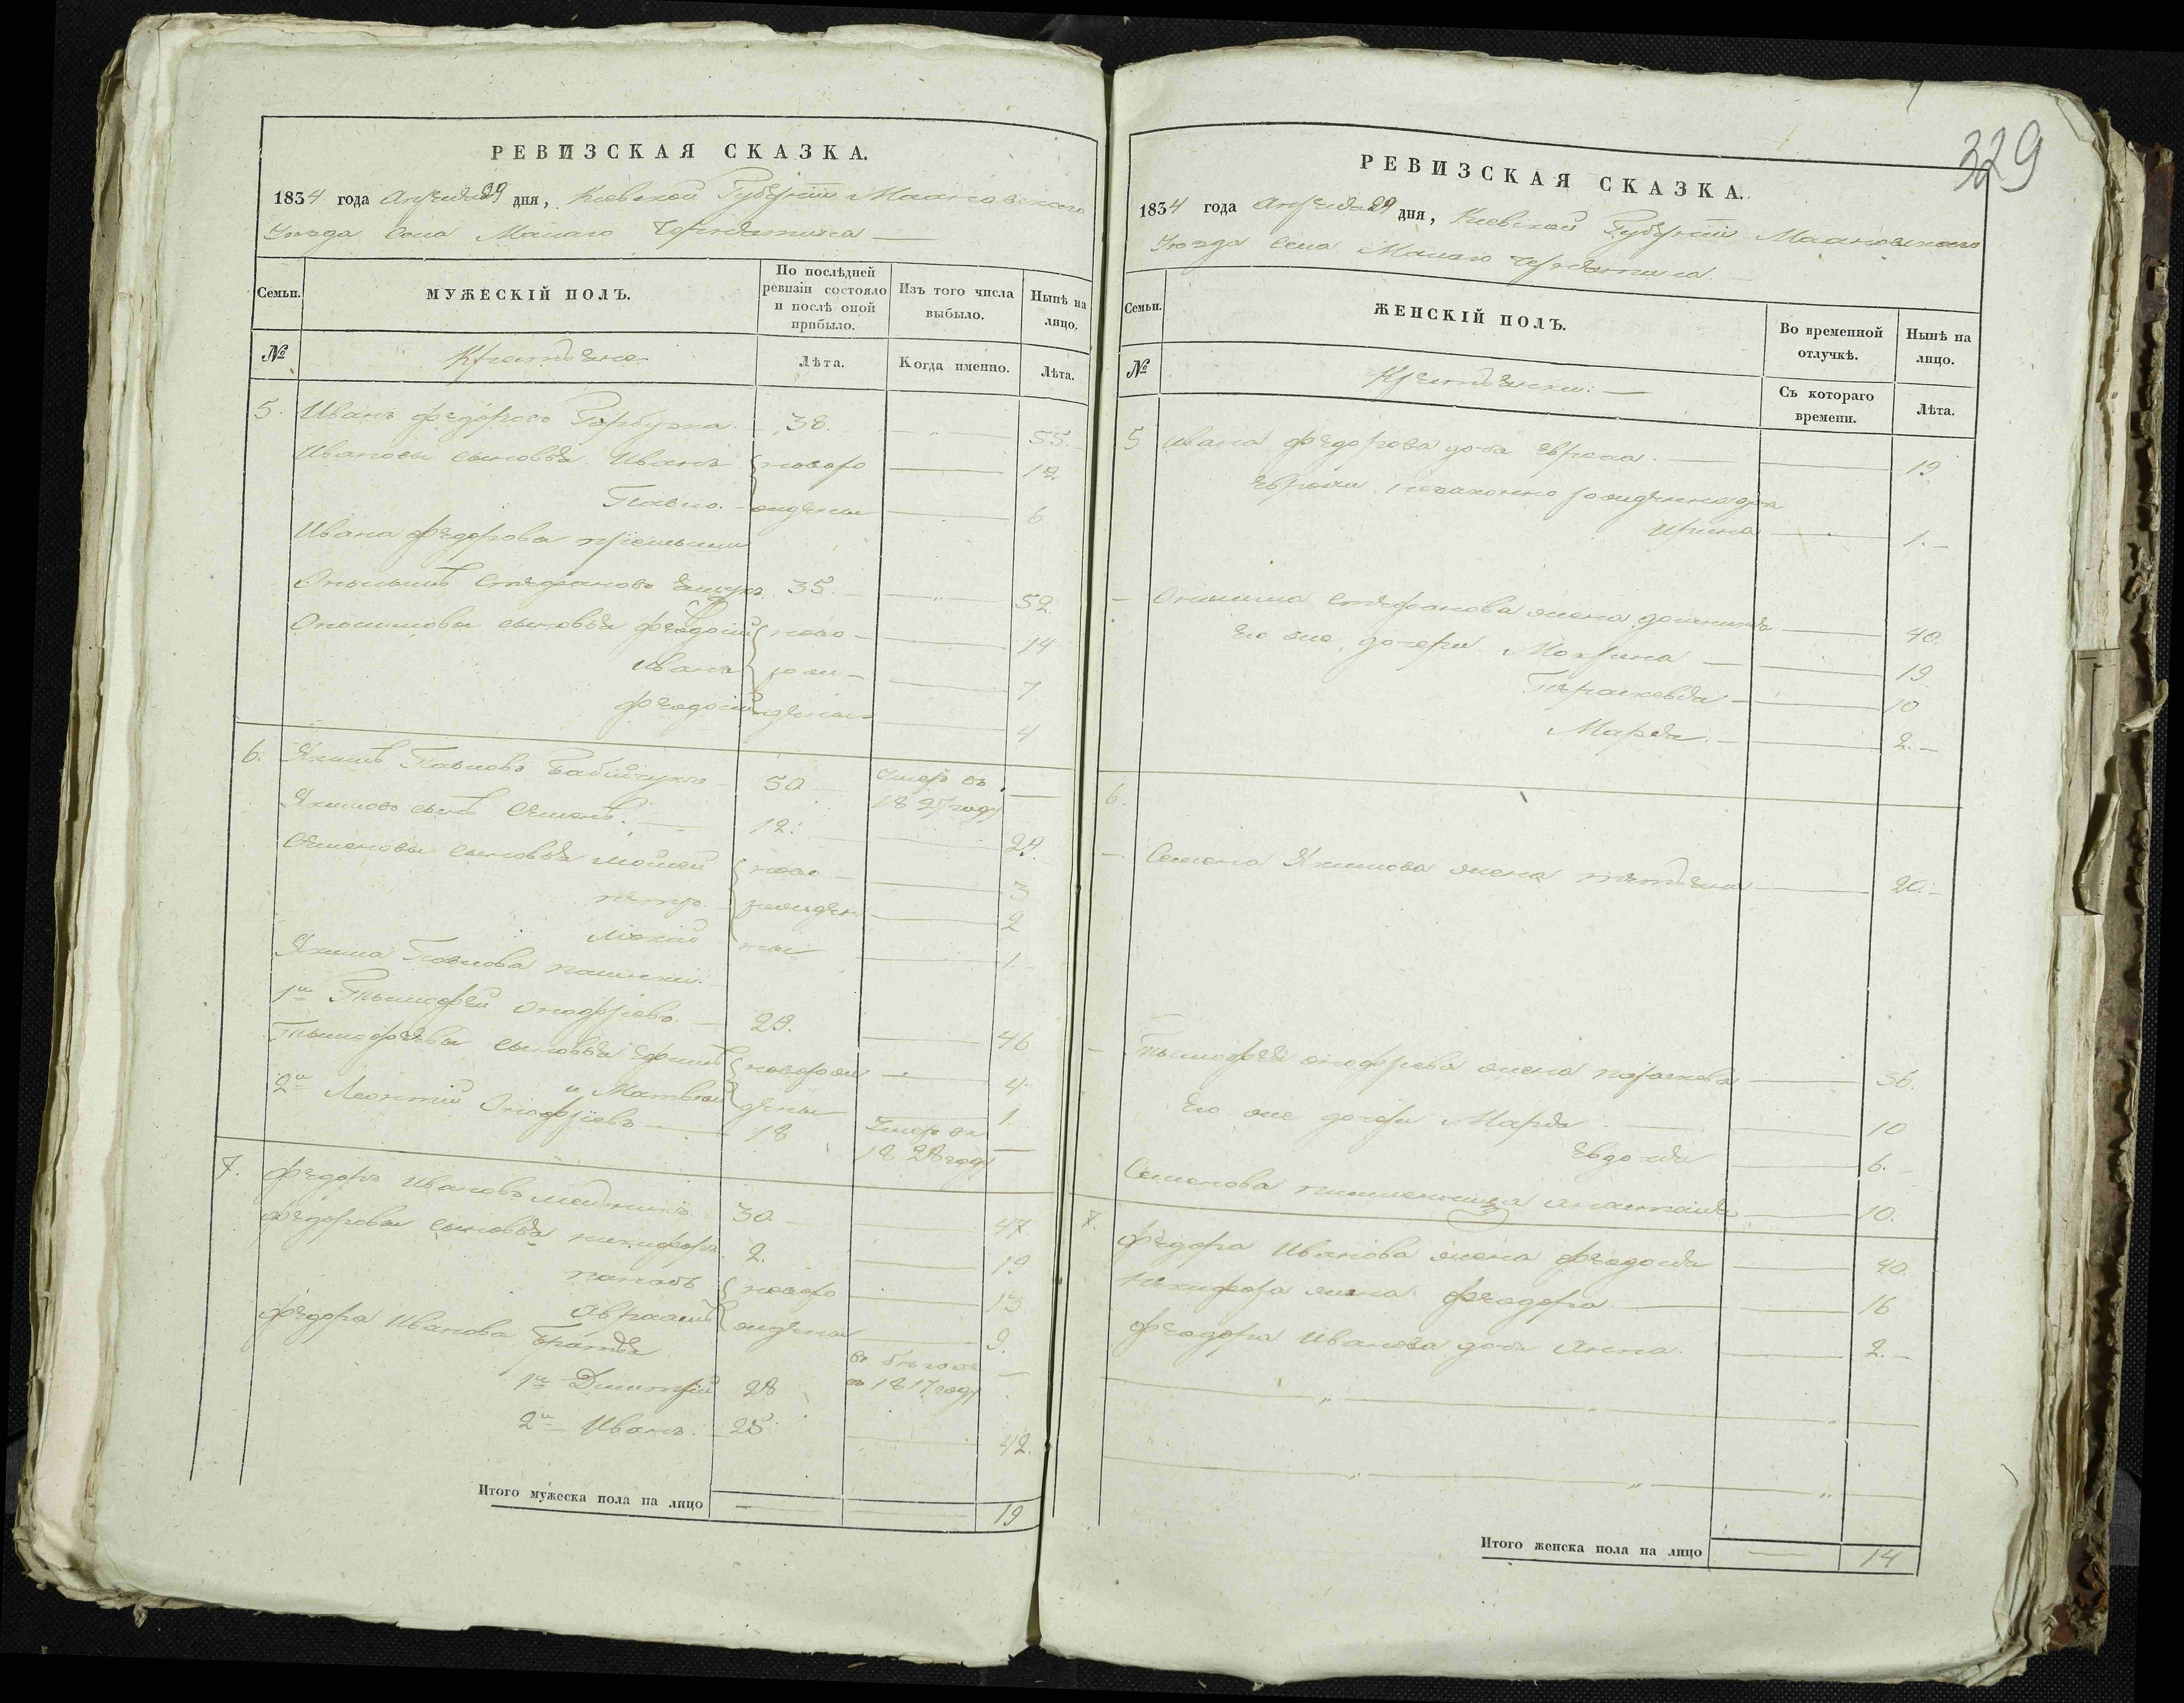 РЕВИЗСКАЯ СКАЗКА.
1834 года Апреля 29 дня, Киевской Губернии
Уезда Села Малаго
Семьи. МУЖЕСКІЙ ПОЛЪ. По послѣдней ревизіи состояло и послѣ оной прибыло. Изъ того числа выбыло. Нынѣ на лицо.
№ Крестьяне Лѣта. Когда именно. Лѣта.
5. Иванъ Федоровъ 38. 55.
Ивановы сыновья Иванъ новоро 12
Павло. жденны 6
Ивана Федорова
Стефановъ 35. 52.
сыновья Феодосій ново 14
Иванъ рож 7
Феодосій денны 4
6. Якимъ Павловъ Бабійчукъ 50 Умеръ въ 1827 году
Якимовъ сынъ Семенъ. 12. 29.
Семеновы сыновья Мойсей ново 3
Петро. рожден 2
ны 1.
Якима Павлова
1й Тымофей Онофріевъ. 29. 46
Тымофеевы сыновья Ефимъ новорож 4.
и Матвей денны 1.
2й Леонтій Онофріевъ 18 Умеръ въ 1828 году
7. Федоръ Ивановъ 30. 47
Федоровы сыновья Никифоръ 2. 19
Потапъ новоро 13
Авраамъ жденны 9.
Федора Иванова братья
1й Димитрій 28 въ 1817 году
2й Иванъ. 25. 42.
Итого мужеска пола на лицо 19
329
РЕВИЗСКАЯ СКАЗКА.
1834 года Апреля 29 дня, Киевской Губернии
Уезда Села Малаго
Семьи. ЖЕНСКІЙ ПОЛЪ. Во временной отлучкѣ. Нынѣ на лицо.
№ Крестьянки. Съ котораго времени. Лѣта.
5 Ивана Федорова дочь 19
незаконно рожденна дочь
Ирина 1.
Стефанова жена 40.
Его же дочери Мокрина 19
Параскевія 10
Марья. 2.
6.
Семена Якимова жена 20.
Тымофея Онофріева жена 36.
Его же дочери Марья 10
Евдокія 6.
Семенова Анастасія 10.
7. Федора Иванова жена Феодосія 40
Никифора жена Феодора 16
Федора Иванова дочь Анна. 2.
Итого женска пола на лицо 14